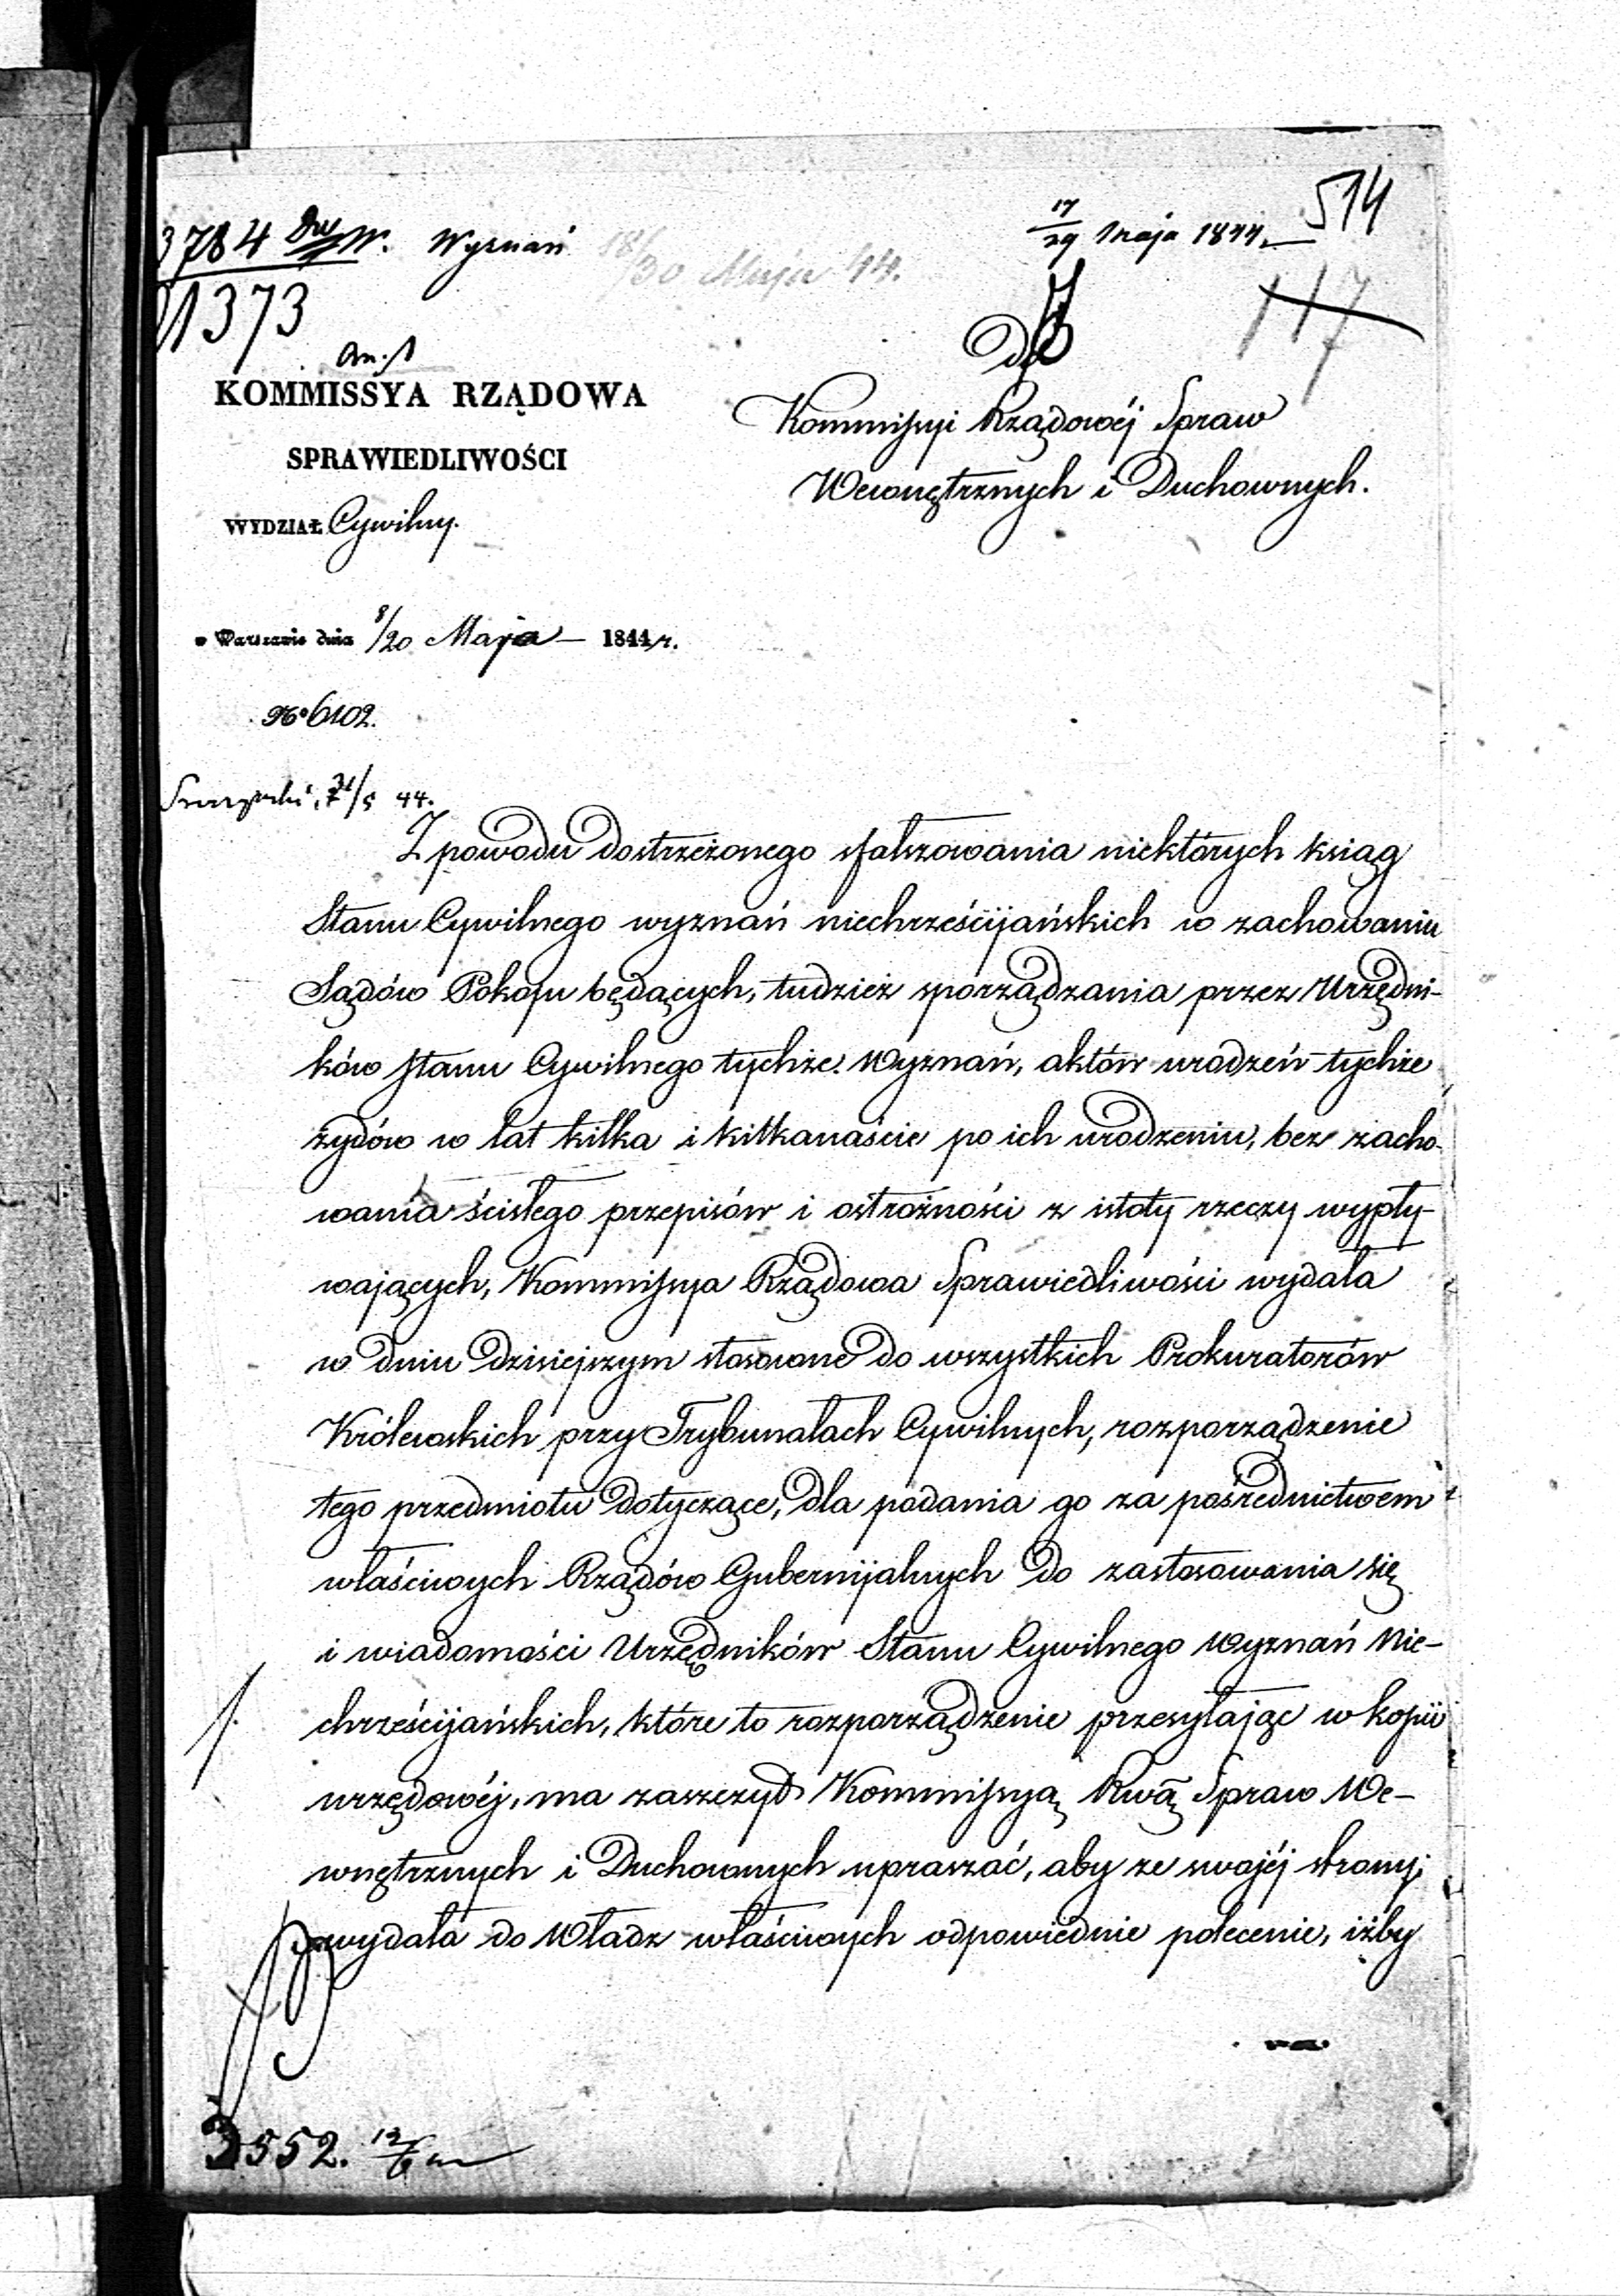 3784 W. Wyznań
18/30 Maja 44.
17/29 Maja 1844.
514
1373
117
An. 1
KOMMISSYA RZĄDOWA
SPRAWIEDLIWOŚCI
WYDZIAŁ Cywilny.
w Warszawie dnia 8/20 Maja 1844 r.
No 6102.
Do
Kommissyi Rządowéj Spraw
Wewnętrznych i Duchownych.
31/5 44.
Z powodu dostrzeżonego sfałszowania niektórych ksiąg
Stanu Cywilnego wyznań niechrześcijańskich w zachowaniu
Sądów Pokoju będących, tudzież sporządzania przez Urzędni-
ków Stanu Cywilnego tychże Wyznań, aktów urodzeń tychże
żydów w lat kilka i kilkanaście po ich urodzeniu, bez zacho-
wania ścisłego przepisów i ostrożności z istoty rzeczy wypły-
wających, Kommissya Rządowa Sprawiedliwości wydała
w dniu dzisiejszym stosowne do wszystkich Prokuratorów
Królewskich przy Trybunałach Cywilnych, rozporządzenie
tego przedmiotu dotyczące, dla podania go za pośrednictwem
właściwych Rządów Gubernijalnych do zastosowania się
i wiadomości Urzędników Stanu Cywilnego Wyznań Nie-
1.
chrześcijańskich, które to rozporządzenie przesyłając w kopii
urzędowéj, ma zaszczyt Kommissyą Rwą Spraw We-
wnętrznych i Duchownych upraszać, aby ze swojéj strony
wydała do Władz właściwych odpowiednie polecenie, iżby
3552. 12/6